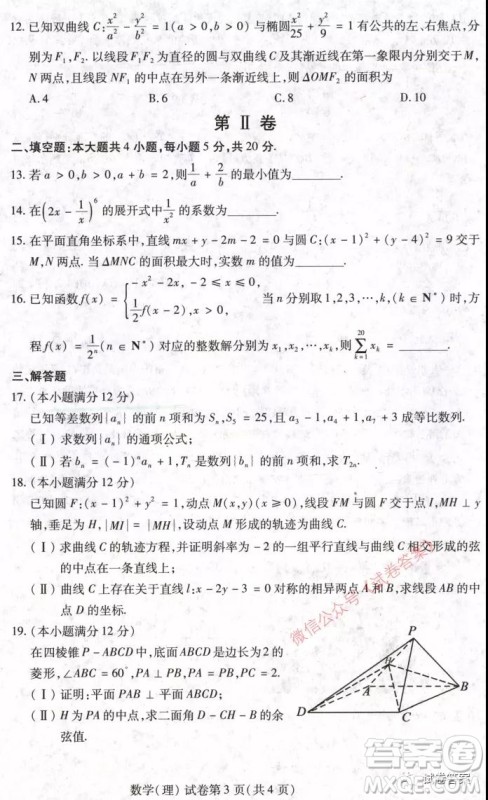 12. 已知双曲线 C: x²/a² − y²/b² = 1(a>0,b>0)与椭圆 x²/25 + y²/9 = 1 有公共的左、右焦点,分
别为 F₁,F₂. 以线段 F₁F₂ 为直径的圆与双曲线 C 及其渐近线在第一象限内分别交于 M,
N 两点,且线段 NF₁ 的中点在另外一条渐近线上,则 △OMF₂ 的面积为
A. 4 B. 6 C. 8 D. 10
第 Ⅱ 卷
二、填空题:本大题共 4 小题,每小题 5 分,共 20 分.
13. 若 a>0,b>0,a+b=2,则 1/a + 2/b 的最小值为______.
14. 在(2x − 1/x)⁶ 的展开式中 1/x² 的系数为______.
15. 在平面直角坐标系中,直线 mx+y−2m−2=0 与圆 C:(x−1)²+(y−4)²=9 交于
M,N 两点. 当 △MNC 的面积最大时,实数 m 的值为______.
16. 已知函数 f(x) = { −x²−2x, −2≤x≤0, 1/2 f(x−2), x>0, 当 n 分别取 1,2,3,…,k,(k∈N*)时,方
程 f(x) = 1/2ⁿ (n∈N*)对应的整数解分别为 x₁,x₂,x₃,…,xₙ,则 ∑(k=1→20) xₖ = ______.
三、解答题
17. (本小题满分 12 分)
已知等差数列{aₙ}的前 n 项和为 Sₙ,S₅=25,且 a₃−1,a₄+1,a₇+3 成等比数列.
(Ⅰ)求数列{aₙ}的通项公式;
(Ⅱ)若 bₙ=(−1)ⁿaₙ+1,Tₙ 是数列{bₙ}的前 n 项和,求 T₂ₙ.
18. (本小题满分 12 分)
已知圆 F:(x−1)²+y²=1,动点 M(x,y)(x≥0),线段 FM 与圆 F 交于点 I,MH⊥y
轴,垂足为 H,|MI|=|MH|,设动点 M 形成的轨迹为曲线 C.
(Ⅰ)求曲线 C 的轨迹方程,并证明斜率为 −2 的一组平行直线与曲线 C 相交形成的弦
的中点在一条直线上;
(Ⅱ)曲线 C 上存在关于直线 l:x−2y−3=0 对称的相异两点 A 和 B,求线段 AB 的中
点 D 的坐标.
19. (本小题满分 12 分)
在四棱锥 P−ABCD 中,底面 ABCD 是边长为 2 的
菱形,∠ABC=60°,PA⊥PB,PC=2.
(Ⅰ)证明:平面 PAB⊥平面 ABCD;
(Ⅱ)H 为 PA 的中点,求二面角 D−CH−B 的余
弦值.
P
H
A
B
D
C
微信公众号《试卷答案》
试卷答案
数学(理)试卷第 3 页(共 4 页)